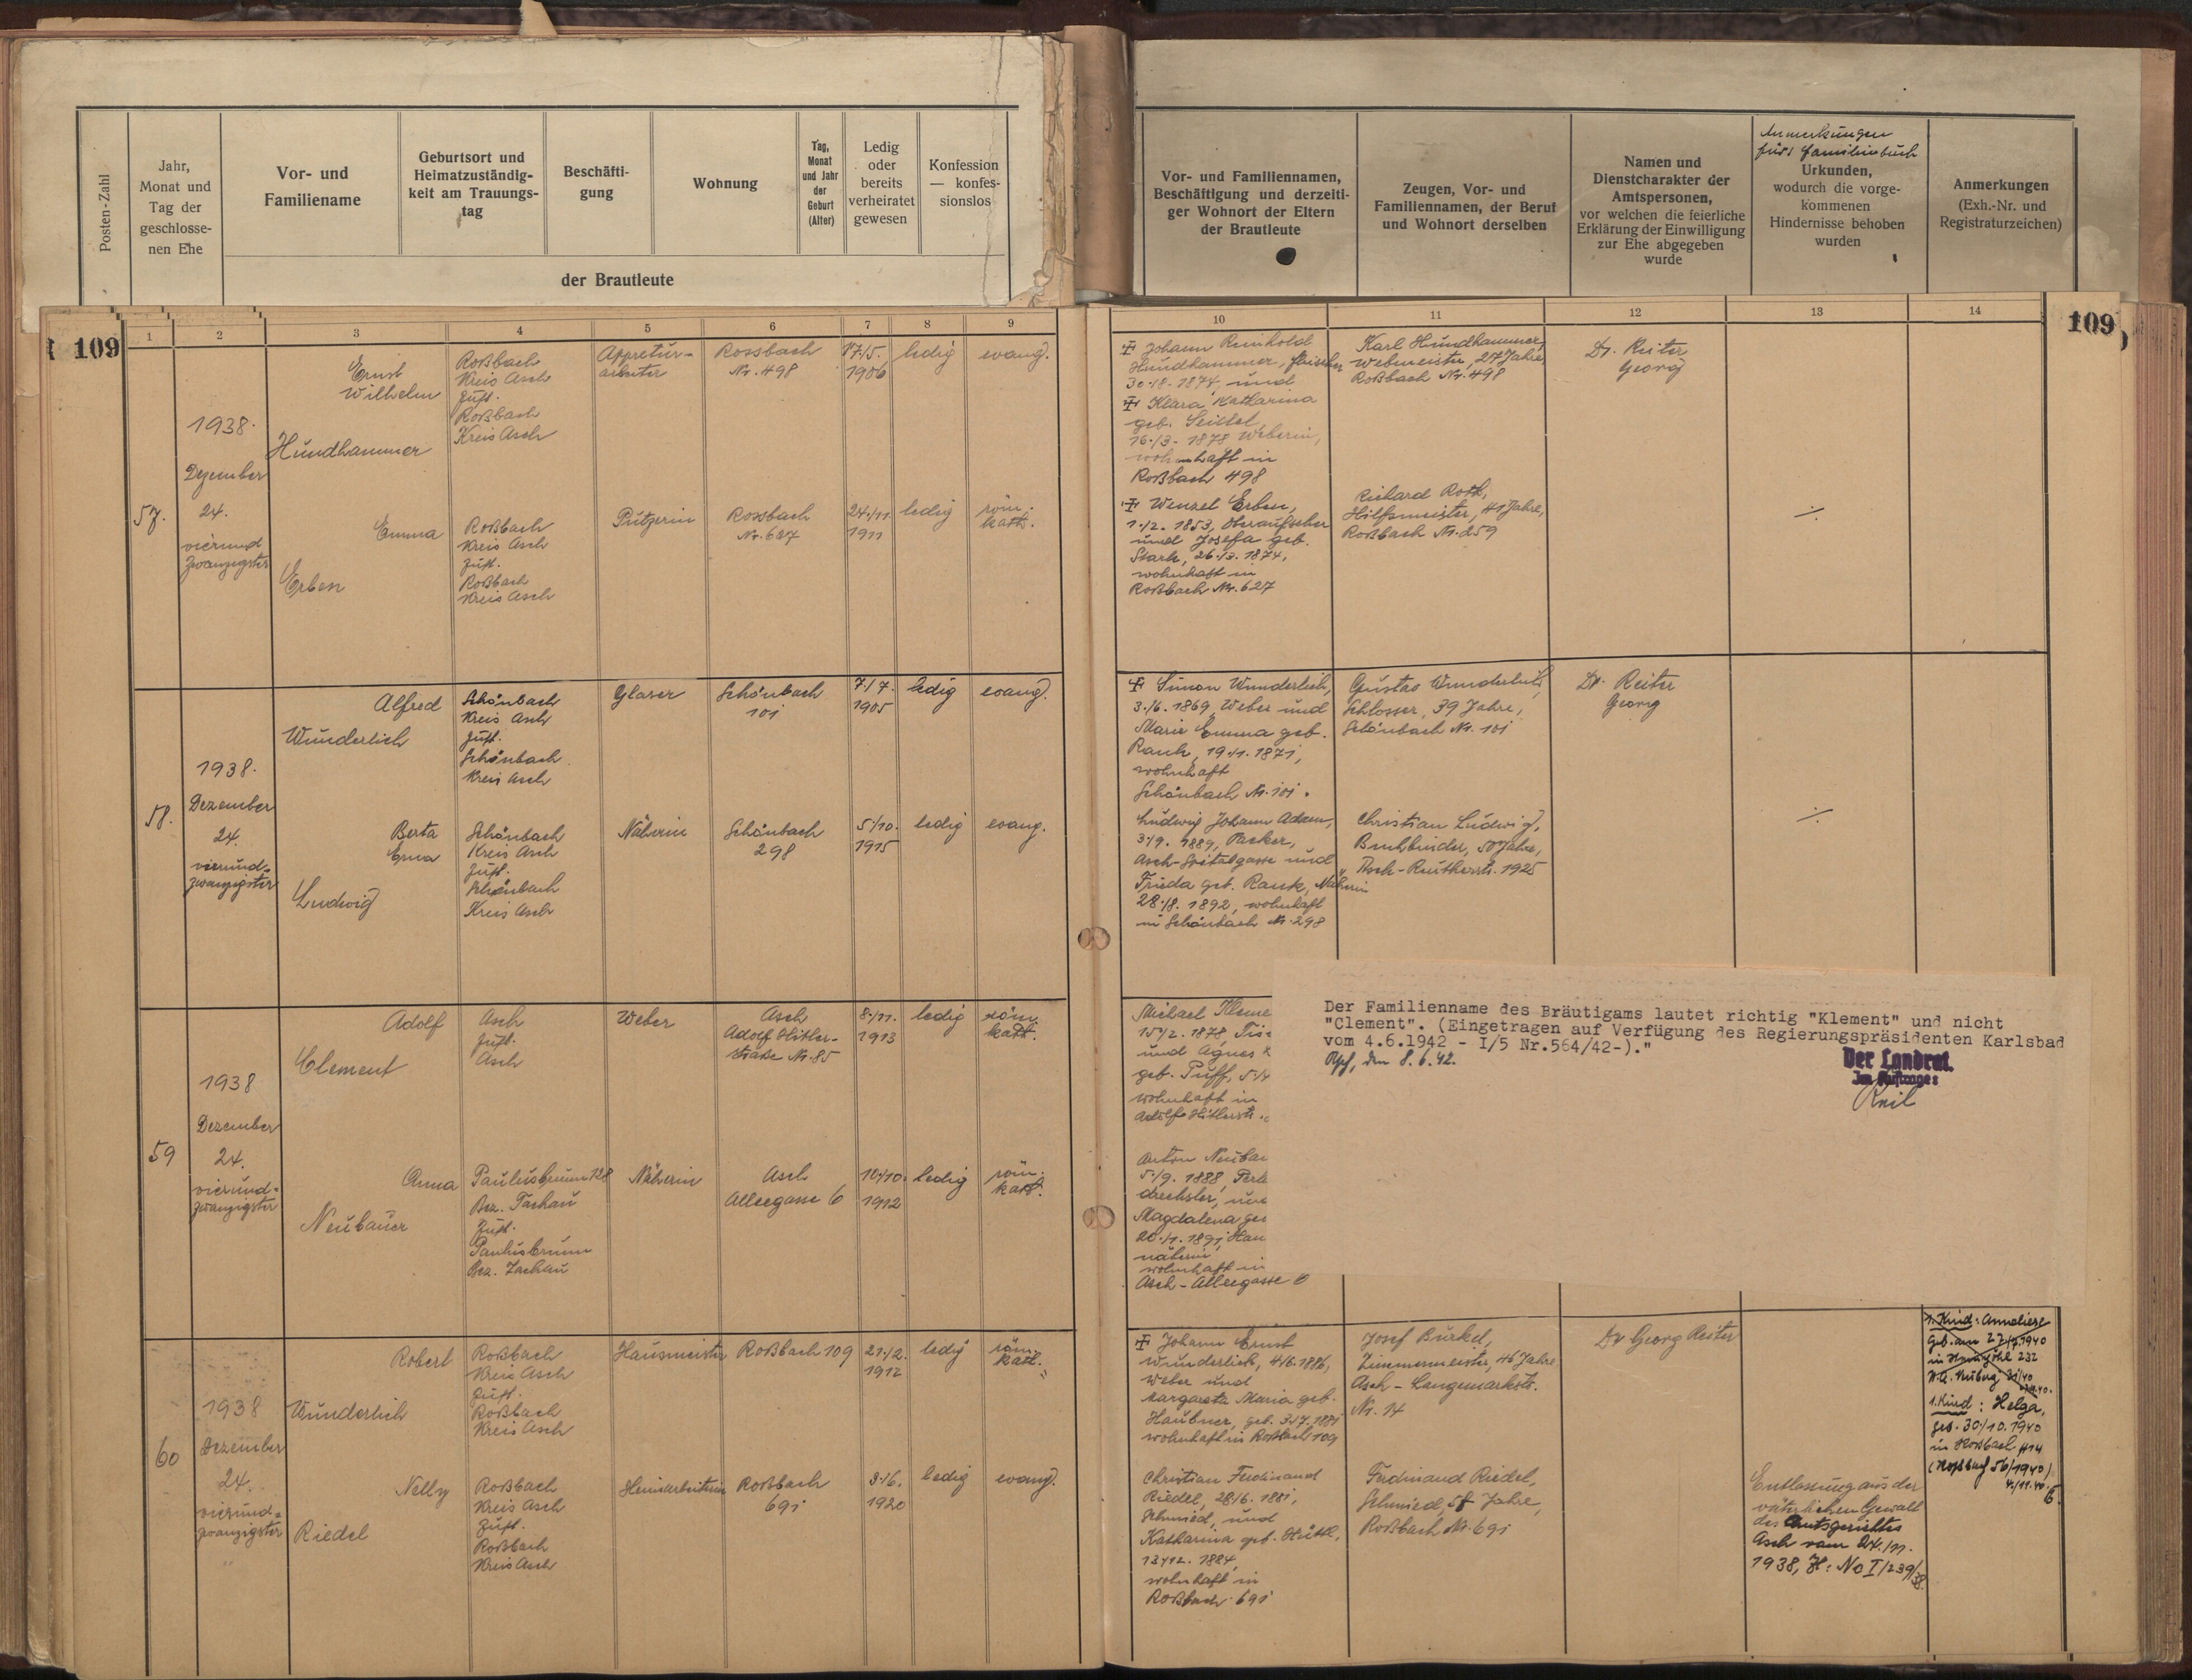 Posten-Zahl
Jahr,
Monat und
Tag der
geschlosse-
nen Ehe
Vor- und
Familiename
Geburtsort und
Heimatzuständig-
keit am Trauungs-
tag
Beschäfti-
gung
Wohnung
Tag,
Monat
und Jahr
der
Geburt
(Alter)
Ledig
oder
bereits
verheiratet
gewesen
Konfession
— konfes-
sionslos
der Brautleute
Vor- und Familiennamen,
Beschäftigung und derzeiti-
ger Wohnort der Eltern
der Brautleute
Zeugen, Vor- und
Familiennamen, der Beruf
und Wohnort derselben
Namen und
Dienstcharakter der
Amtspersonen,
vor welchen die feierliche
Erklärung der Einwilligung
zur Ehe abgegeben
wurde
Anmerkungen
fürs Familienbuch
Urkunden,
wodurch die vorge-
kommenen
Hindernisse behoben
wurden
Anmerkungen
(Exh.-Nr. und
Registraturzeichen)
109
1 2 3 4 5 6 7 8 9
10 11 12 13 14
109
57.
1938.
Dezember
24.
vierund
zwanzigster
Ernst
Wilhelm
Hundhammer
Roßbach
Kreis Asch
Zust.
Roßbach
Kreis Asch
Appretur-
arbeiter
Rossbach
Nr. 498
17/5.
1906
ledig
evang.
Emma
Erben
Roßbach
Kreis Asch
Zust.
Roßbach
Kreis Asch
Putzerin
Rossbach
Nr. 627
24./11.
1911
ledig
röm.
kath.
Johann Reinhold
Hundhammer,
30./8. 1874, und
Klara Katharina
geb. Seidel,
16./3. 1878 Weberin,
wohnhaft in
Roßbach 498
Wenzel Erben,
1./2. 1853, Oberaufseher
und Josefa geb.
Stark, 26./3. 1874,
wohnhaft in
Roßbach Nr. 627
Karl Hundhammer,
Webmeister, 27 Jahre,
Roßbach Nr. 498
Richard Roth,
Hilfsmeister, 41 Jahre,
Roßbach Nr. 259
Dr. Reiter
Georg
58.
1938.
Dezember
24.
vierund-
zwanzigster
Alfred
Wunderlich
Schönbach
Kreis Asch
Zust.
Schönbach
Kreis Asch
Glaser
Schönbach
101
7./7.
1905
ledig
evang.
Berta
Erna
Ludwig
Schönbach
Kreis Asch
Zust.
Schönbach
Kreis Asch
Näherin
Schönbach
298
5/10.
1915
ledig
evang.
Simon Wunderlich,
3./6. 1869, Weber und
Marie Emma geb.
Rank, 19./1. 1871,
wohnhaft
Schönbach Nr. 101.
Ludwig Johann Adam,
3./9. 1889, Packer,
Asch-Spitalgasse und
Frieda geb. Rank, Näherin
28./8. 1892, wohnhaft
in Schönbach Nr. 298
Gustav Wunderlich,
Schlosser, 39 Jahre,
Schönbach Nr. 101
Christian Ludwig,
Buchbinder, 50 Jahre,
Asch- 1925
Dr. Reiter
Georg
59
1938
Dezember
24.
vierund-
zwanzigster
Adolf
Clement
Asch
Zust.
Asch
Weber
Asch
Adolf Hitler-
straße Nr. 85
8./11.
1913
ledig
röm.
kath.
Anna
Neubauer
Paulusbrunn 128
Bez. Tachau
Zust.
Paulusbrunn
Bez. Tachau
Näherin
Asch
Alleegasse 6
10./10.
1912
ledig
röm.
kath.
Michael Kleme
15./2. 1878, Tis
und Agnes
geb. Puff, 5./
wohnhaft in
Adolf Hitlerstr.
Anton Neubau
5./9. 1888, Perl
drechsler, und
Magdalena geb
20./1. 1891, Hau
näherin
wohnhaft in
Asch - Alleegasse 6
Der Familienname des Bräutigams lautet richtig "Klement" und nicht
"Clement". (Eingetragen auf Verfügung des Regierungspräsidenten Karlsbad
vom 4.6.1942 - I/5 Nr.564/42-)."
Asch, den 8.6.42.
Der Landrat.
Im Auftrage:
60
1938
Dezember
24.
vierund-
zwanzigster
Robert
Wunderlich
Roßbach
Kreis Asch
Zust.
Roßbach
Kreis Asch
Hausmeister
Roßbach 109
21./2.
1912
ledig
röm.
kath.
Nelly
Riedel
Roßbach
Kreis Asch
Zust.
Roßbach
Kreis Asch
Heimarbeiterin
Roßbach
691
3./6.
1920
ledig
evang.
Johann Ernst
Wunderlich, 4./6. 1886,
Weber und
Margareta Maria geb.
Haubner, geb. 3./7. 1881
wohnhaft in Roßbach 109
Christian Ferdinand
Riedel, 28./6. 1881,
Schmied, und
Katharina geb.
13./12. 1884,
wohnhaft in
Roßbach 691
Josef Bürkel,
Zimmermeister, 46 Jahre,
Asch - Langemarckstr.
Nr. 14
Ferdinand Riedel,
Schmied, 58 Jahre,
Roßbach Nr. 691
Dr Georg Reiter
Entlassung aus der
väterlichen Gewalt
des Amtsgerichtes
Asch vom 24./11.
1938, Z: No I/239/38.
1. Kind: Anneliese
geb. am 27/7.1940
in 232
1. Kind: Helga,
geb. 30./10. 1940
in Roßbach 414
(Roßbach 56/1940)
4./11.40.